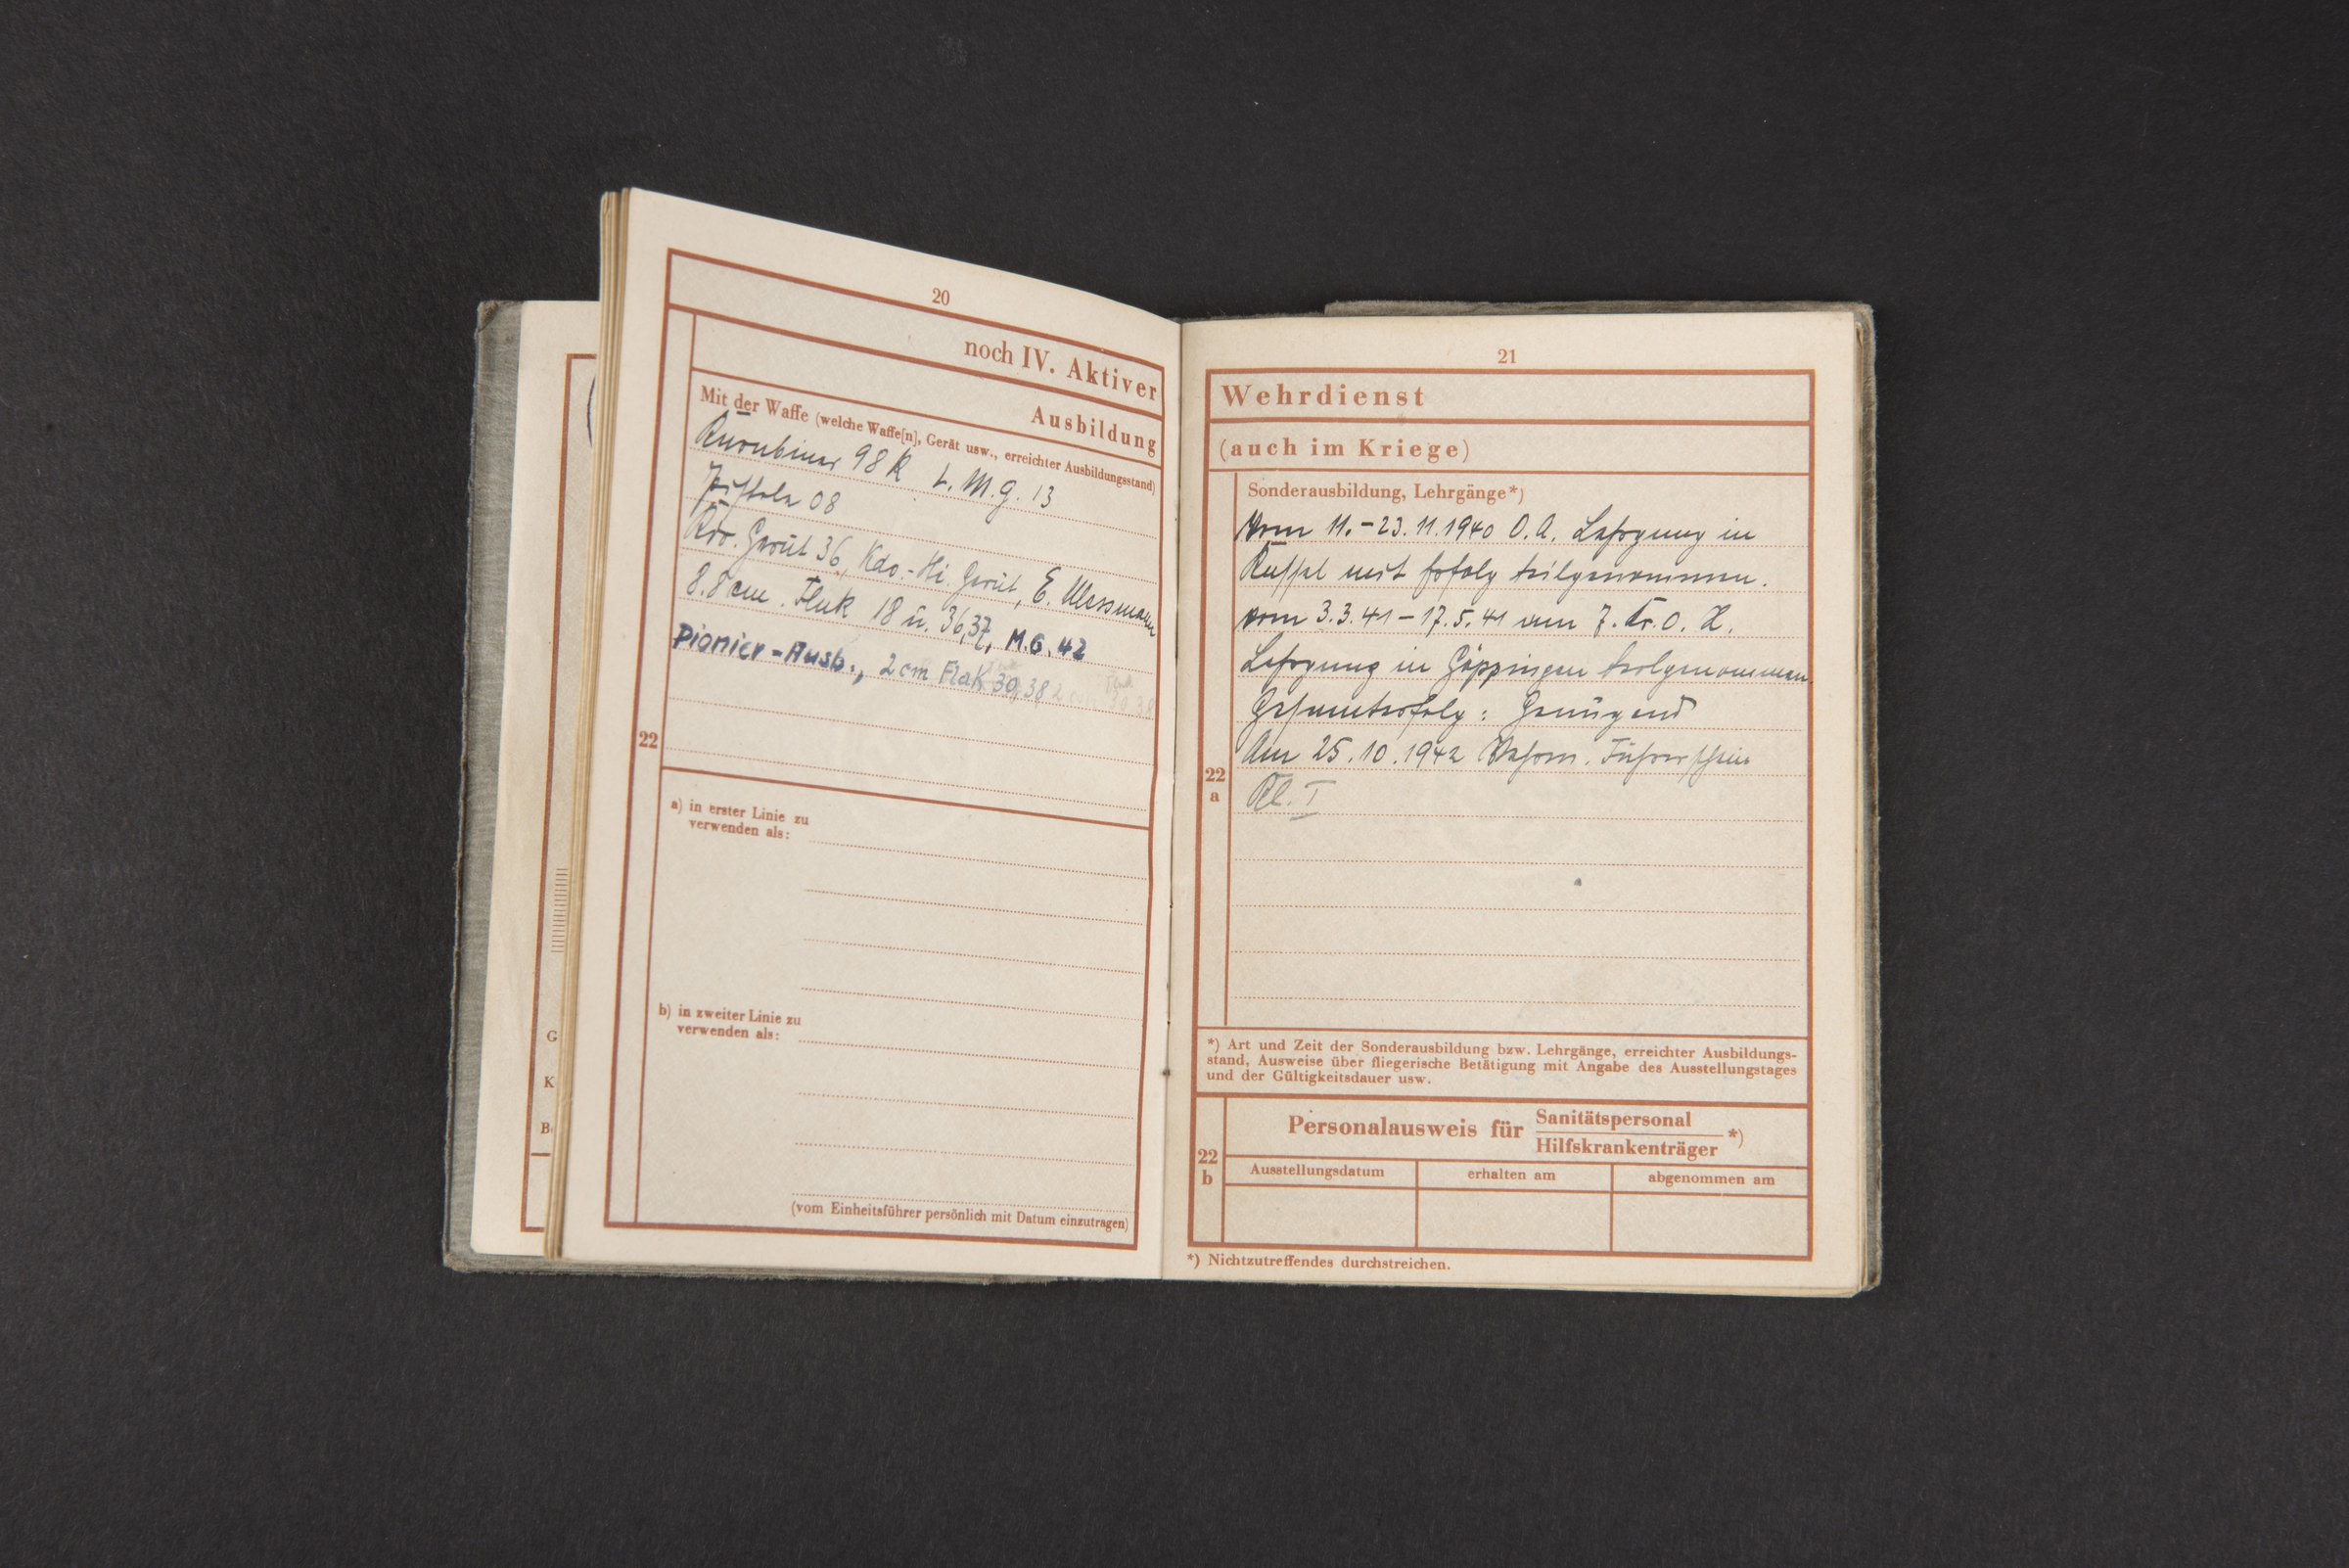 20
noch IV. Aktiver
Ausbildung
Mit der Waffe (welche Waffe[n], Gerät usw., erreichter Ausbildungsstand)
Karabiner 98 K L. M. G. 13
Pistole 08
Kdo. Gerät 36, Kdo.-Hi. Gerät, E. Messmann
8.8 cm. Flak 18 u. 36,37, M.G. 42
Pionier-Ausb., 2 cm Flak 30, 38
22
a) in erster Linie zu
verwenden als:
b) in zweiter Linie zu
verwenden als:
(vom Einheitsführer persönlich mit Datum einzutragen)
G
K
B
21
Wehrdienst
(auch im Kriege)
Sonderausbildung, Lehrgänge*)
Vom 11.-23.11.1940 O.A. Lehrgang in
Kassel mit Erfolg teilgenommen.
vom 3.3.41-17.5.41 am 7. Kr. O. A.
Lehrgang in Göppingen teilgenommen.
Gesamterfolg: Genügend
Am 25.10.1942 Wehrm. Führerschein
Kl. I
22
a
*) Art und Zeit der Sonderausbildung bzw. Lehrgänge, erreichter Ausbildungs-
stand, Ausweise über fliegerische Betätigung mit Angabe des Ausstellungstages
und der Gültigkeitsdauer usw.
22
b
Personalausweis für Sanitätspersonal
Hilfskrankenträger *)
Ausstellungsdatum erhalten am abgenommen am
*) Nichtzutreffendes durchstreichen.